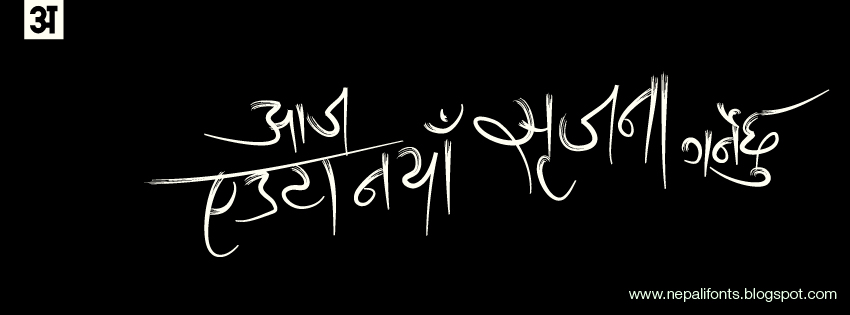 अ
आज
एउटा नयाँ सृजना गर्नेछु
www.nepalifonts.blogspot.com